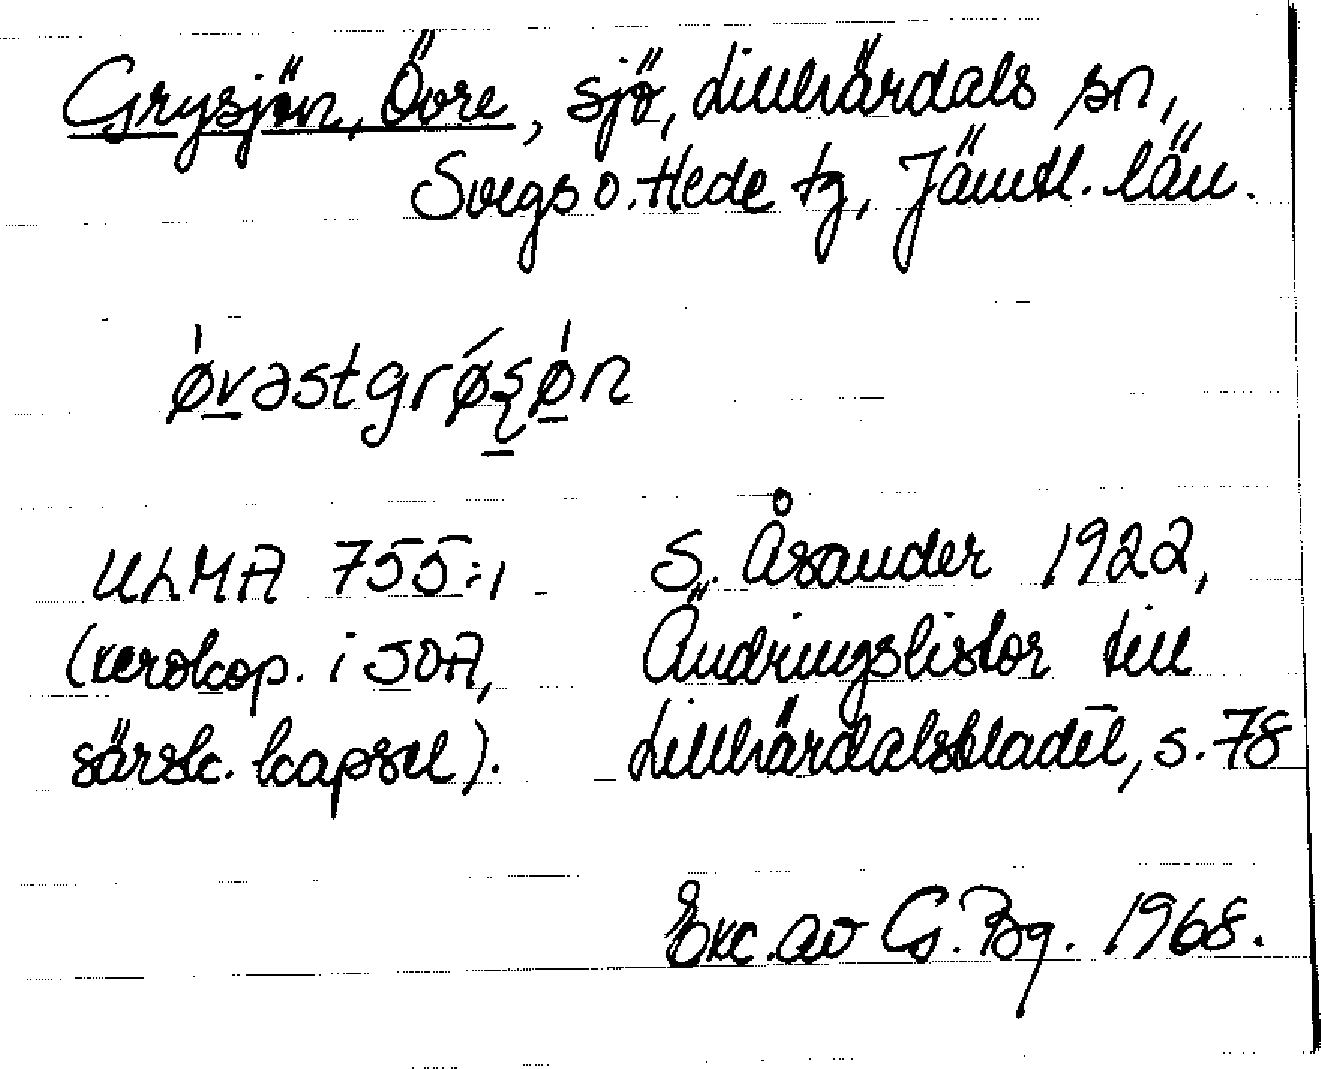 Grysjön, Övre, sjö, Lillhärdals sn,
Svegs o. Hede tg, Jämtl. län.
ǿvəstgrǿʂǿn
ULMA 755:1
(xerokop. i SOA,
särsk. kapsel).
S. Åsander 1922,
Ändringslistor till
Lillhärdalsbladet, s. 78
Exc. av G. Bg. 1968.